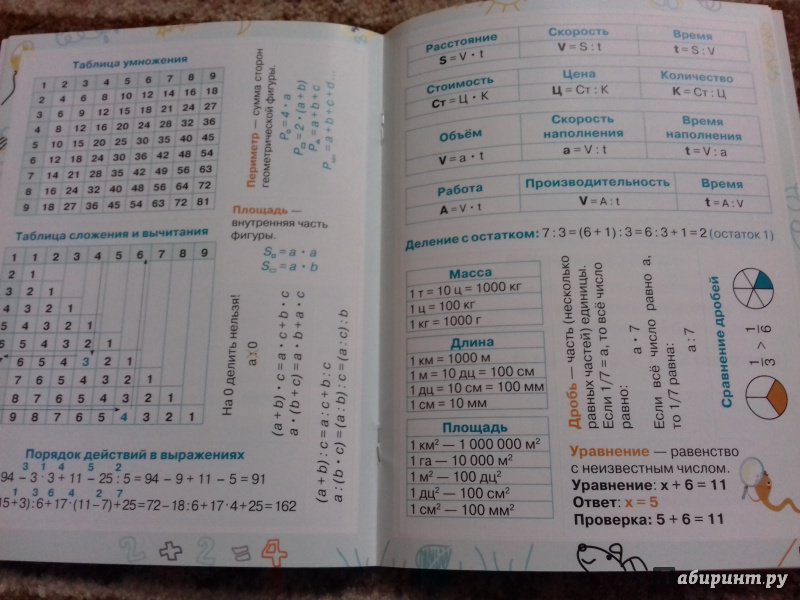 Таблица умножения
1 2 3 4 5 6 7 8 9
2 4 6 8 10 12 14 16 18
3 6 9 12 15 18 21 24 27
4 8 12 16 20 24 28 32 36
5 10 15 20 25 30 35 40 45
6 12 18 24 30 36 42 48 54
7 14 21 28 35 42 49 56 63
8 16 24 32 40 48 56 64 72
9 18 27 36 45 54 63 72 81
Таблица сложения и вычитания
1 1 2 3 4 5 6 7 8 9
2 1
3 2 1
4 3 2 1
5 4 3 2 1
6 5 4 3 2 1
7 6 5 4 3 2 1
8 7 6 5 4 3 2 1
9 8 7 6 5 4 3 2 1
Периметр — сумма сторон
геометрической фигуры.
P□ = 4 · a
P▭ = 2 · (a + b)
P = a + b + c
P = a + b + c + d...
Площадь —
внутренняя часть
фигуры.
S□ = a · a
S▭ = a · b
На 0 делить нельзя!
a : 0
(a + b) · c = a · c + b · c
a · (b + c) = a · b + a · c
(a + b) : c = a : c + b : c
a : (b · c) = (a : b) : c = (a : c) : b
Порядок действий в выражениях
3 1 4 5 2
94 – 3 · 3 + 11 – 25 : 5 = 94 – 9 + 11 – 5 = 91
1 3 6 4 2 7
15+3) : 6+17 · (11–7)+25=72–18:6+17·4+25=162
2 + 2 = 4
Расстояние Скорость Время
S = V · t V = S : t t = S : V
Стоимость Цена Количество
Ст = Ц · К Ц = Ст : К К = Ст : Ц
Объём Скорость наполнения Время наполнения
V = a · t a = V : t t = V : a
Работа Производительность Время
A = V · t V = A : t t = A : V
Деление с остатком: 7 : 3 = (6 + 1) : 3 = 6 : 3 + 1 = 2 (остаток 1)
Масса
1 т = 10 ц = 1000 кг
1 ц = 100 кг
1 кг = 1000 г
Длина
1 км = 1000 м
1 м = 10 дц = 100 см
1 дц = 10 см = 100 мм
1 см = 10 мм
Площадь
1 км² — 1 000 000 м²
1 га — 10 000 м²
1 м² — 100 дц²
1 дц² — 100 см²
1 см² — 100 мм²
Дробь — часть (несколько
равных частей) единицы.
Если 1/7 = a, то всё число
равно:
a · 7
Если всё число равно a,
то 1/7 равна:
a : 7
Сравнение дробей
1/3 > 1/6
Уравнение — равенство
с неизвестным числом.
Уравнение: x + 6 = 11
Ответ: x = 5
Проверка: 5 + 6 = 11
Лабиринт.ру